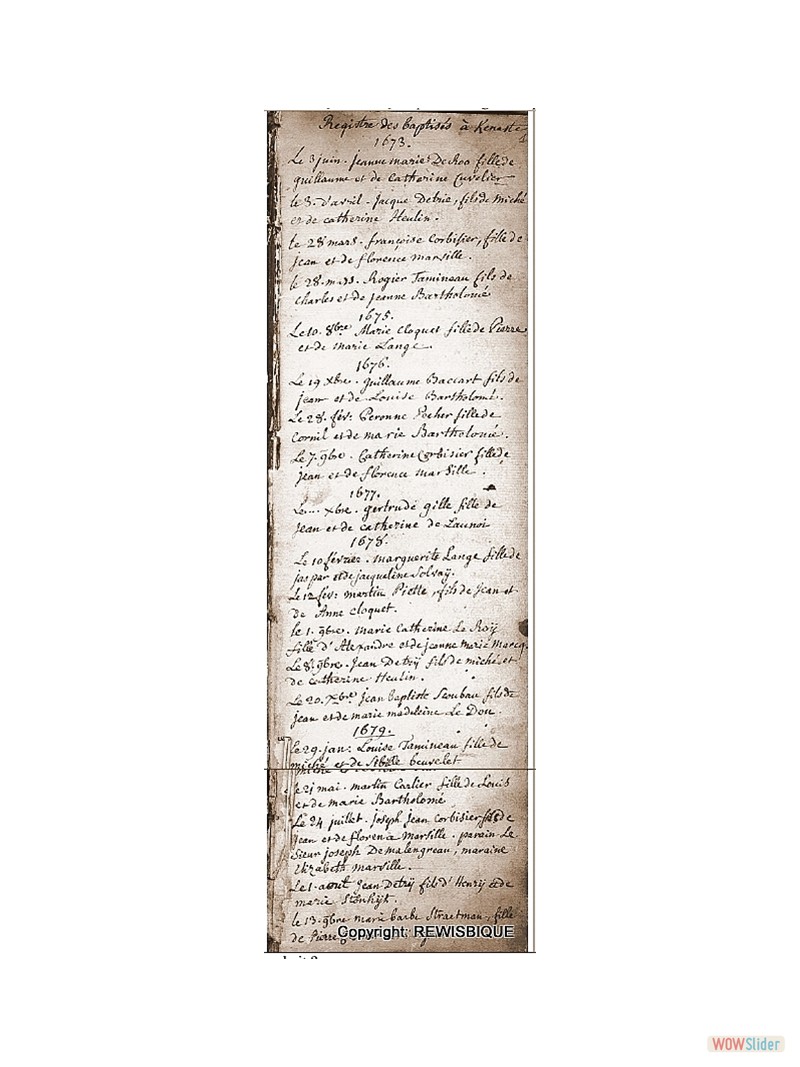 Registre des baptisés à Kenaste
1673.
Le 3 juin. jeanne marie De Roo fille de
guillaume et de Catherine Cuvelier
le 3. d'avril. Jacque Detrie, fils de miché
et de catherine Heulin.
le 28 mars. françoise Corbisier, fille de
jean et de florence marsille.
le 28. mars. Rogier Tamineau fils de
charles et de jeanne Bartholomé
1675.
Le 10. 8bre Marie Cloquet fille de Pierre
et de marie Lange.
1676.
Le 19 Xbre. guillaume Baccart fils de
jean et de Louise Bartholomé.
Le 28. fév: Peronne Pecher fille de
Cornil et de marie Bartholomé.
Le 7. 9bre. Catherine Corbisier fille de
jean et de florence marsille.
1677.
Le... Xbre. gertrude gille fille de
jean et de catherine de Launoi
1678.
Le 10 février. marguerite Lange fille de
jaspar et de jacqueline Solvaÿ.
Le 12 fév: martin Piette, fils de jean et
de Anne Cloquet.
le 1. 9bre. marie Catherine Le Roÿ
fille d'Alexandre et de jeanne marie Marcq.
Le 8. 9bre. Jean Detrÿ fils de miché et
de catherine Heulin.
Le 20. Xbre jean baptiste Scoubau fils de
jean et de marie madeleine Le Dou
1679.
Le 29. jan: Louise Tamineau fille de
miché et de Sibille beuvelet
le 21 mai. martin Carlier fille de Louis
et de marie Bartholomé
Le 24 juillet. joseph Jean Corbisier fils de
jean et de florence Marsille. parain Le
Sieur joseph Demalengreau, maraine
Elizabeth marsille.
Le 1. aout Jean Detrÿ fils d'Henrÿ et de
marie
le 13. 9bre marie barbe Straetman, fille
de Pierre
Copyright: REWISBIQUE
WOWSlider